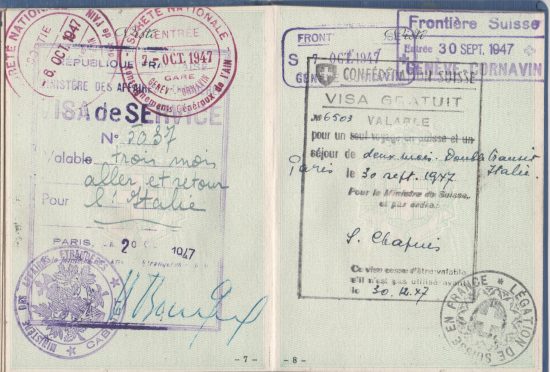 SORTIE
6 OCT. 1947
ENTRÉE
OCT. 1947
GARE
GENEV-CORNAVIN
MINISTÈRE DES AFFAIRE
VISA de SERVICE
N° 2037
Valable trois mois
aller et retour
Pour l'Italie
PARIS, LE 20 1947
MINISTÈRE DES AFFAIRES ETRANGÈRES
CABINET
- 7 -
FRONT
S 7 OCT. 1947
GEN
Frontière Suisse
Entrée 30 SEPT. 1947
GENÈVE-CORNAVIN
CONFÉDÉRATION SUISSE
VISA GRATUIT
№ 6503 VALABLE
pour un seul voyage en Suisse et un
séjour de deux mois. Double transit
Paris le 30 sept. 1947 Italie.
Pour le Ministre de Suisse,
et par ordre:
S. Chapuis
Ce visa cesse d'être valable
s'il n'est pas utilisé avant
le 30.12.47
LÉGATION DE SUISSE EN FRANCE
- 8 -